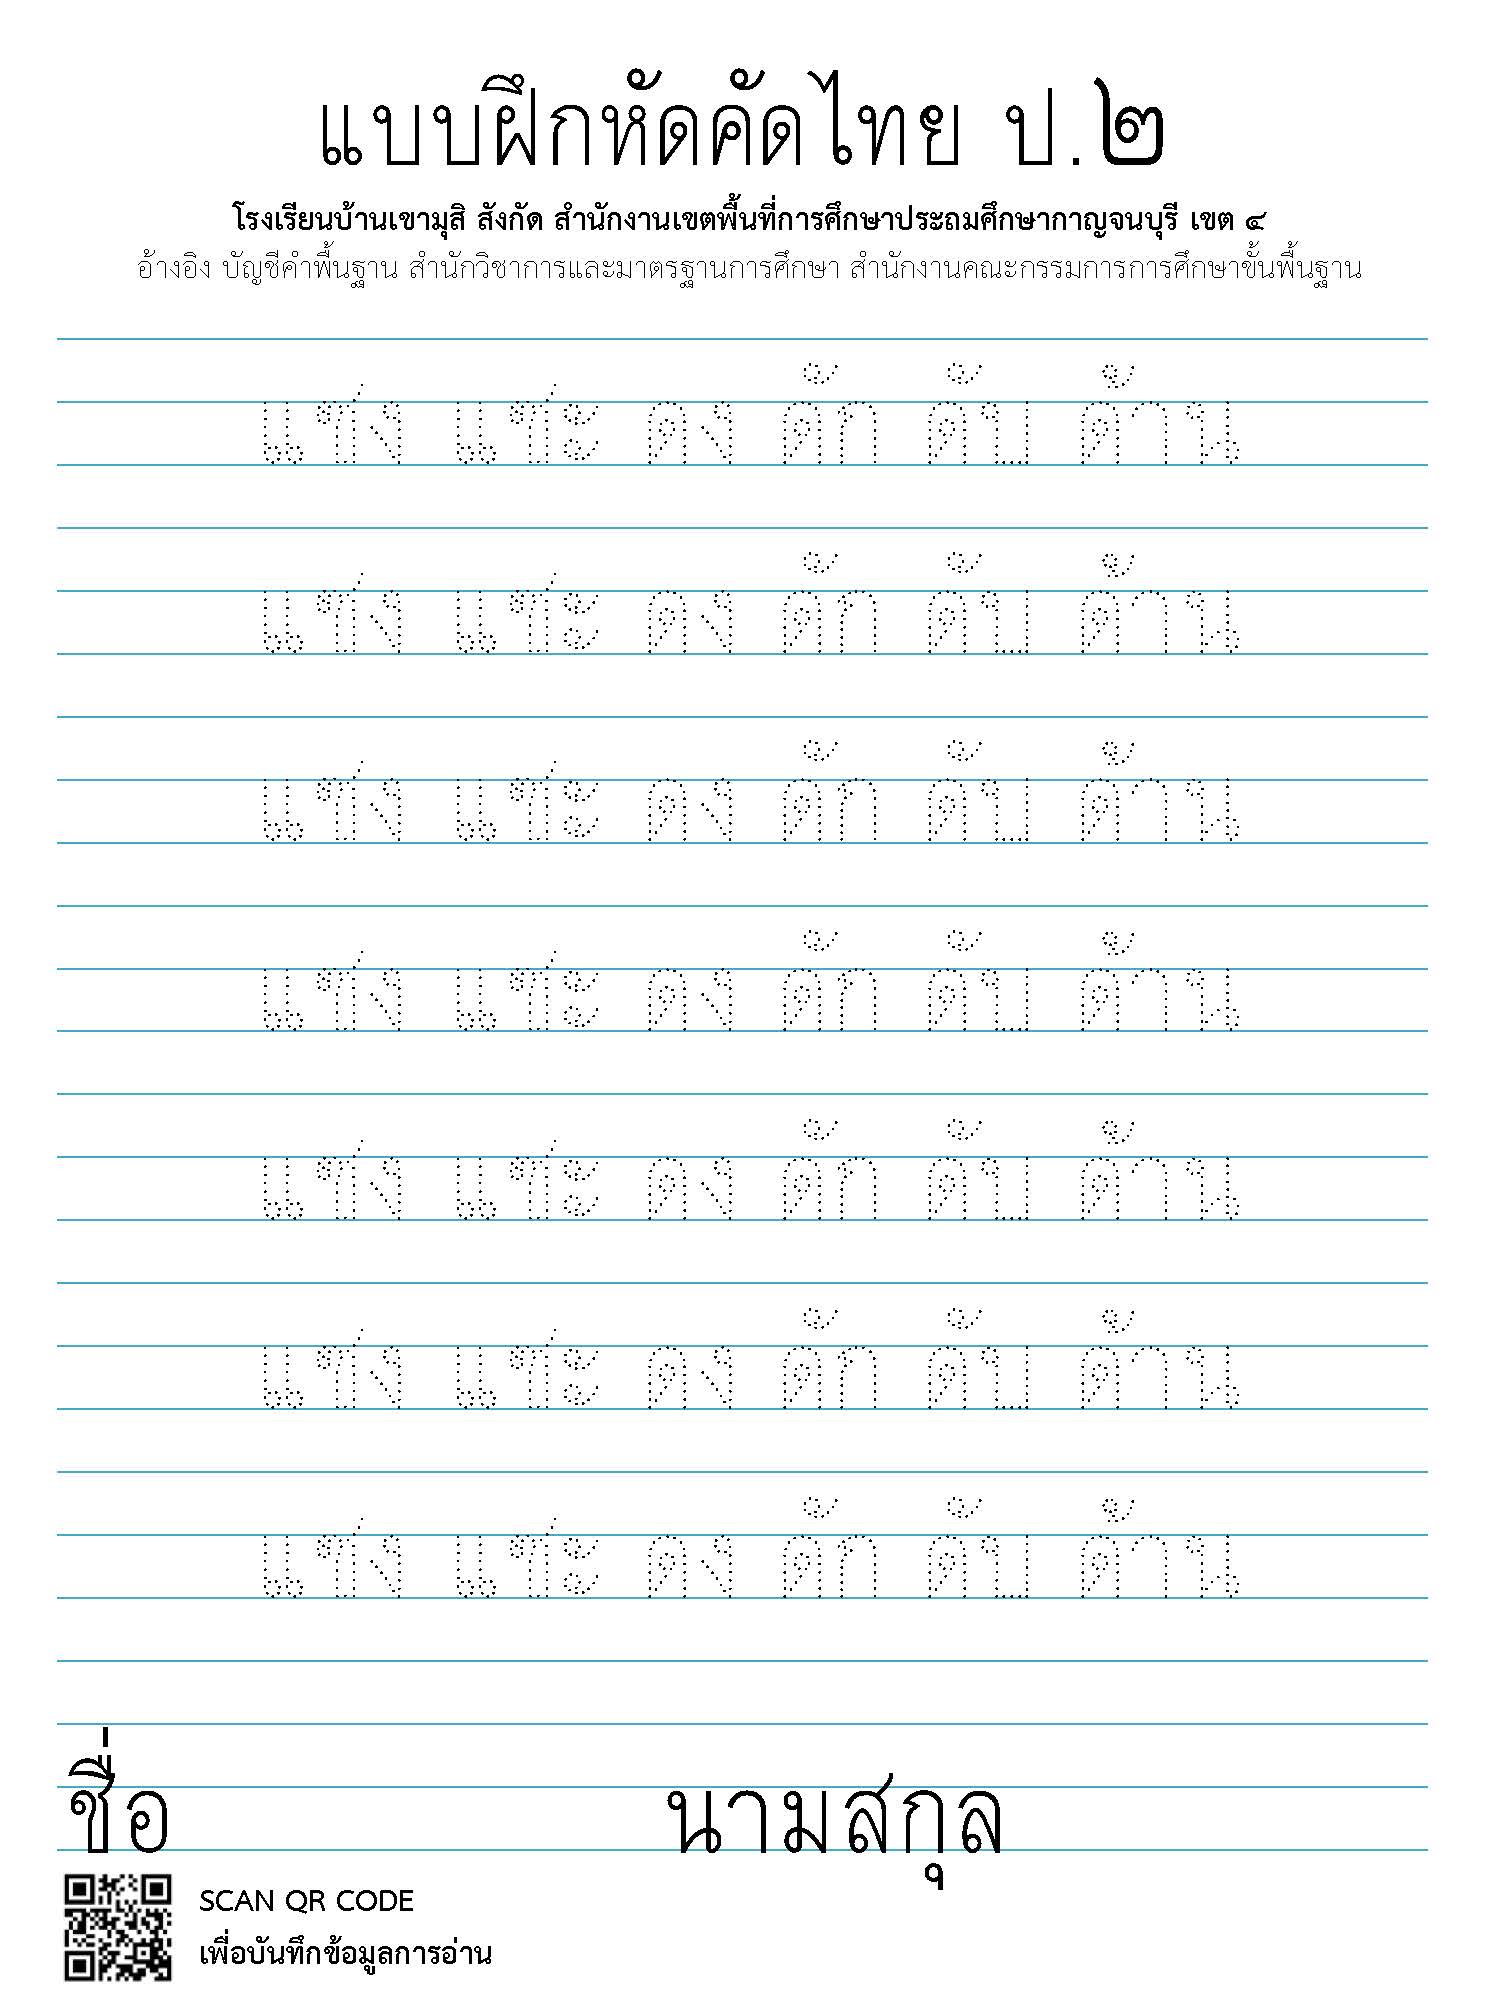 แบบฝึกหัดคัดไทย ป.๒
โรงเรียนบ้านเขามุสิ สังกัด สำนักงานเขตพื้นที่การศึกษาประถมศึกษากาญจนบุรี เขต ๔
อ้างอิง บัญชีคำพื้นฐาน สำนักวิชาการและมาตรฐานการศึกษา สำนักงานคณะกรรมการการศึกษาขั้นพื้นฐาน
แซง แซะ ดง ดัก ดับ ด้าน
แซง แซะ ดง ดัก ดับ ด้าน
แซง แซะ ดง ดัก ดับ ด้าน
แซง แซะ ดง ดัก ดับ ด้าน
แซง แซะ ดง ดัก ดับ ด้าน
แซง แซะ ดง ดัก ดับ ด้าน
แซง แซะ ดง ดัก ดับ ด้าน
ชื่อ นามสกุล
SCAN QR CODE
เพื่อบันทึกข้อมูลการอ่าน